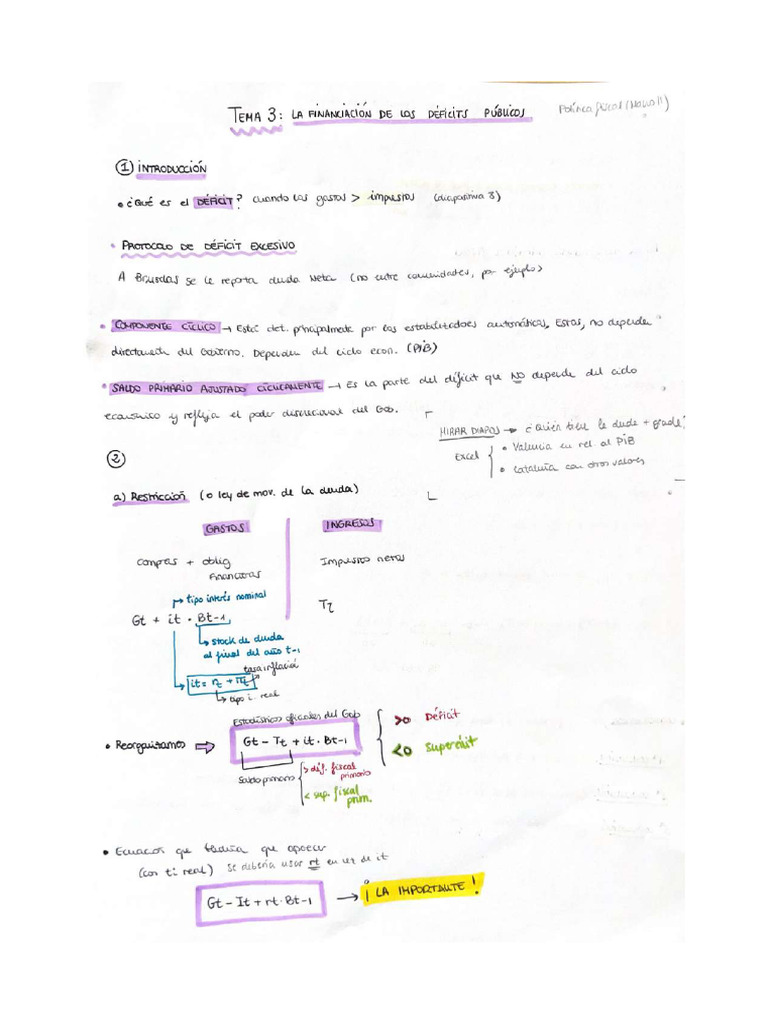 TEMA 3: LA FINANCIACIÓN DE LOS DÉFICITS PÚBLICOS
Política fiscal
① INTRODUCCIÓN
• ¿Qué es el DÉFICIT? cuando los gastos > impuestos (diapositiva 3)
• PROTOCOLO DE DÉFICIT EXCESIVO
A Bruselas se le reporta deuda Neta (no entre comunidades, por ejemplo)
• COMPONENTE CÍCLICO → Está det. principalmente por los estabilizadores automáticos, Estos, no dependen
directamente del Gobierno. Dependen del ciclo econ. (PIB)
• SALDO PRIMARIO AJUSTADO CICLICAMENTE → Es la parte del déficit que NO depende del ciclo
económico y refleja el poder discrecional del Gob.
MIRAR DIAPOS → ¿Quién tiene la deuda + grande?
Excel { • Valencia en rel al PIB
• Cataluña con otros valores
②
a) Restricción (o ley de mov. de la deuda)
GASTOS INGRESOS
Compras + oblig Impuestos netos
Financieras
→ tipo interés nominal
Gt + it · Bt-1 Tt
→ stock de deuda
al final del año t-1
tasa inflació
it = rt + πt
→ tipo i. real
Estadísticos oficiales del Gob
• Reorganizamos ⇒ Gt - Tt + it · Bt-1 { >0 Déficit
<0 Superávit
Saldo primario { > déf. fiscal
primario
< sup. fiscal
prim.
• Ecuación que tendría que aparecer
(con ti real) Se debería usar rt en vez de it
Gt - It + rt · Bt-1 → ¡LA IMPORTANTE!